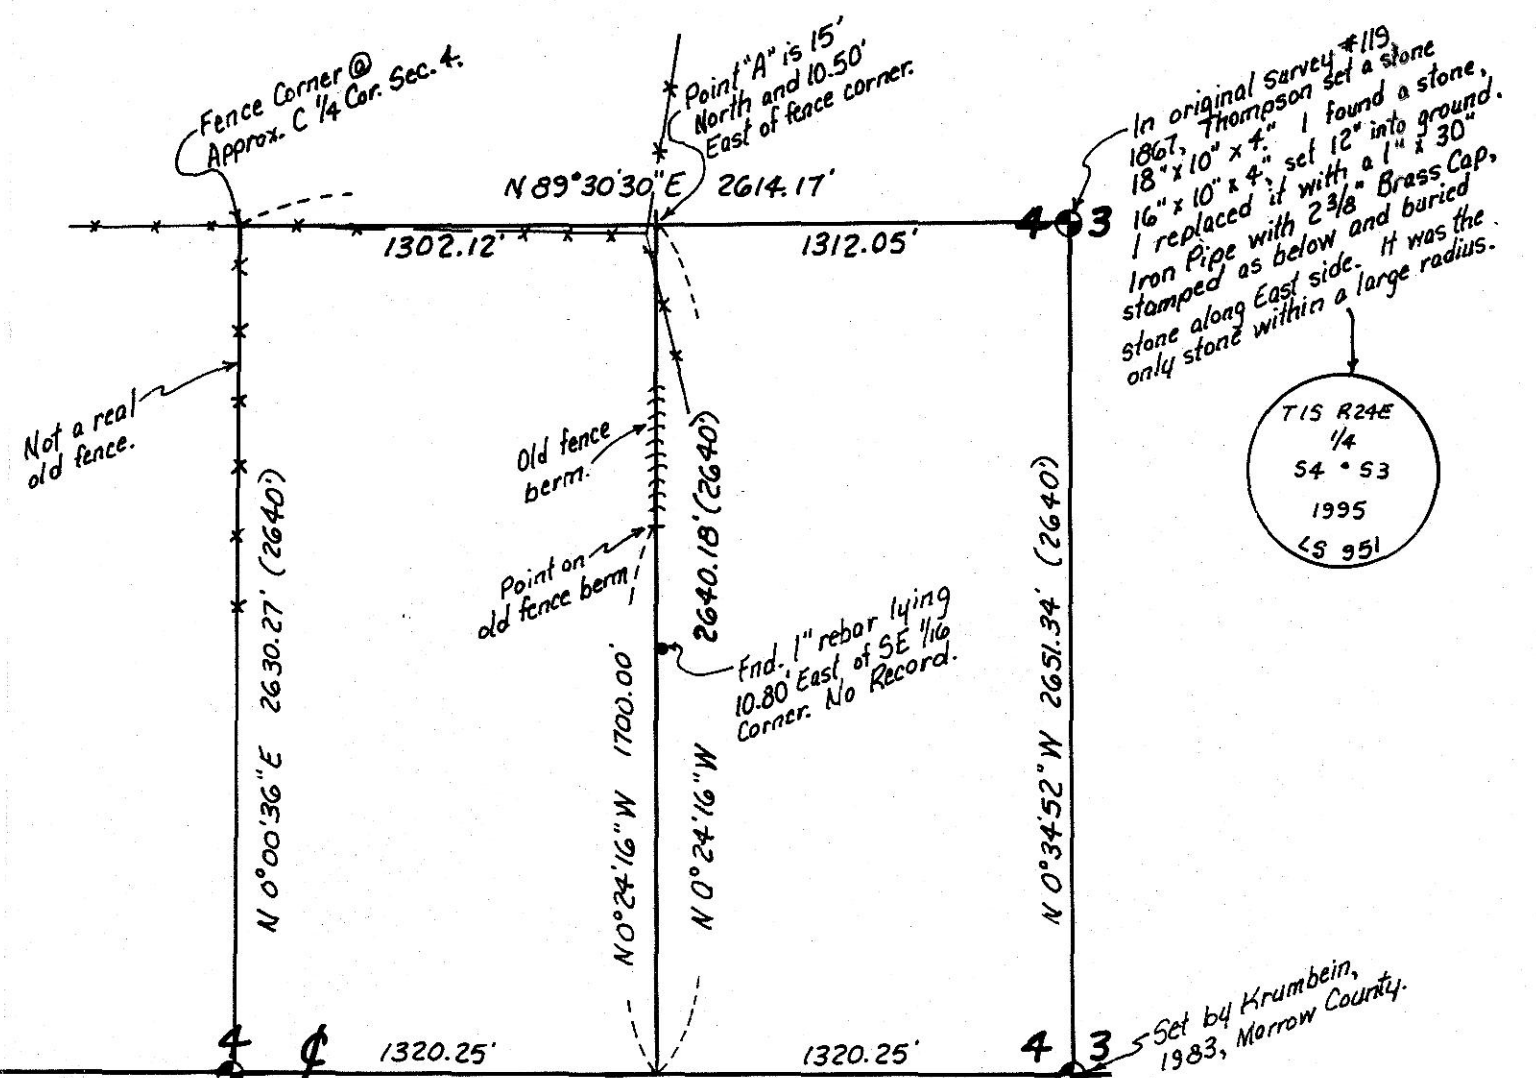 Fence Corner @
Approx. C 1/4 Cor. Sec. 4.
Point "A" is 15'
North and 10.50'
East of fence corner.
In original Survey #119,
1867, Thompson set a stone
18" x 10" x 4". I found a stone,
16" x 10" x 4", set 12" into ground.
I replaced it with a 1" x 30"
Iron Pipe with 2 3/8" Brass Cap,
stamped as below and buried
stone along East side. It was the
only stone within a large radius.
N 89°30'30" E 2614.17'
1302.12'
1312.05'
4 3
T1S R24E
1/4
S4 • S3
1995
LS 951
Not a real
old fence.
Old fence
berm.
Point on
old fence berm
Fnd. 1" rebar lying
10.80' East of SE 1/16
Corner. No Record.
N 0°00'36" E 2630.27' (2640')
N 0°24'16" W 1700.00'
N 0°24'16" W 2640.18' (2640')
N 0°34'52" W 2651.34' (2640')
4
₵
1320.25'
1320.25'
4 3
Set by Krumbein,
1983, Morrow County.